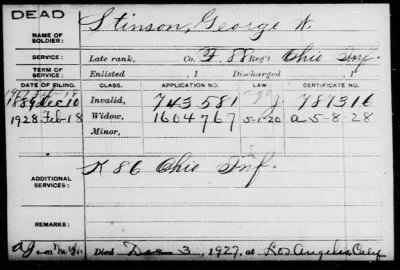 DEAD
NAME OF SOLDIER: Stinson, George W.
SERVICE: Late rank, Co. F. 88 Reg't Ohio Inf.
TERM OF SERVICE: Enlisted , 1 Discharged , 1
DATE OF FILING. CLASS. APPLICATION NO. LAW. CERTIFICATE NO.
1889 Dec 10 Invalid, 743581 J. 787316
1928 Feb-18 Widow, 1604767 5-1-20 a 5-8-28
Minor,
ADDITIONAL SERVICES: K 86 Ohio Inf.
REMARKS:
Died Dec 3, 1927, at Los Angeles Calif